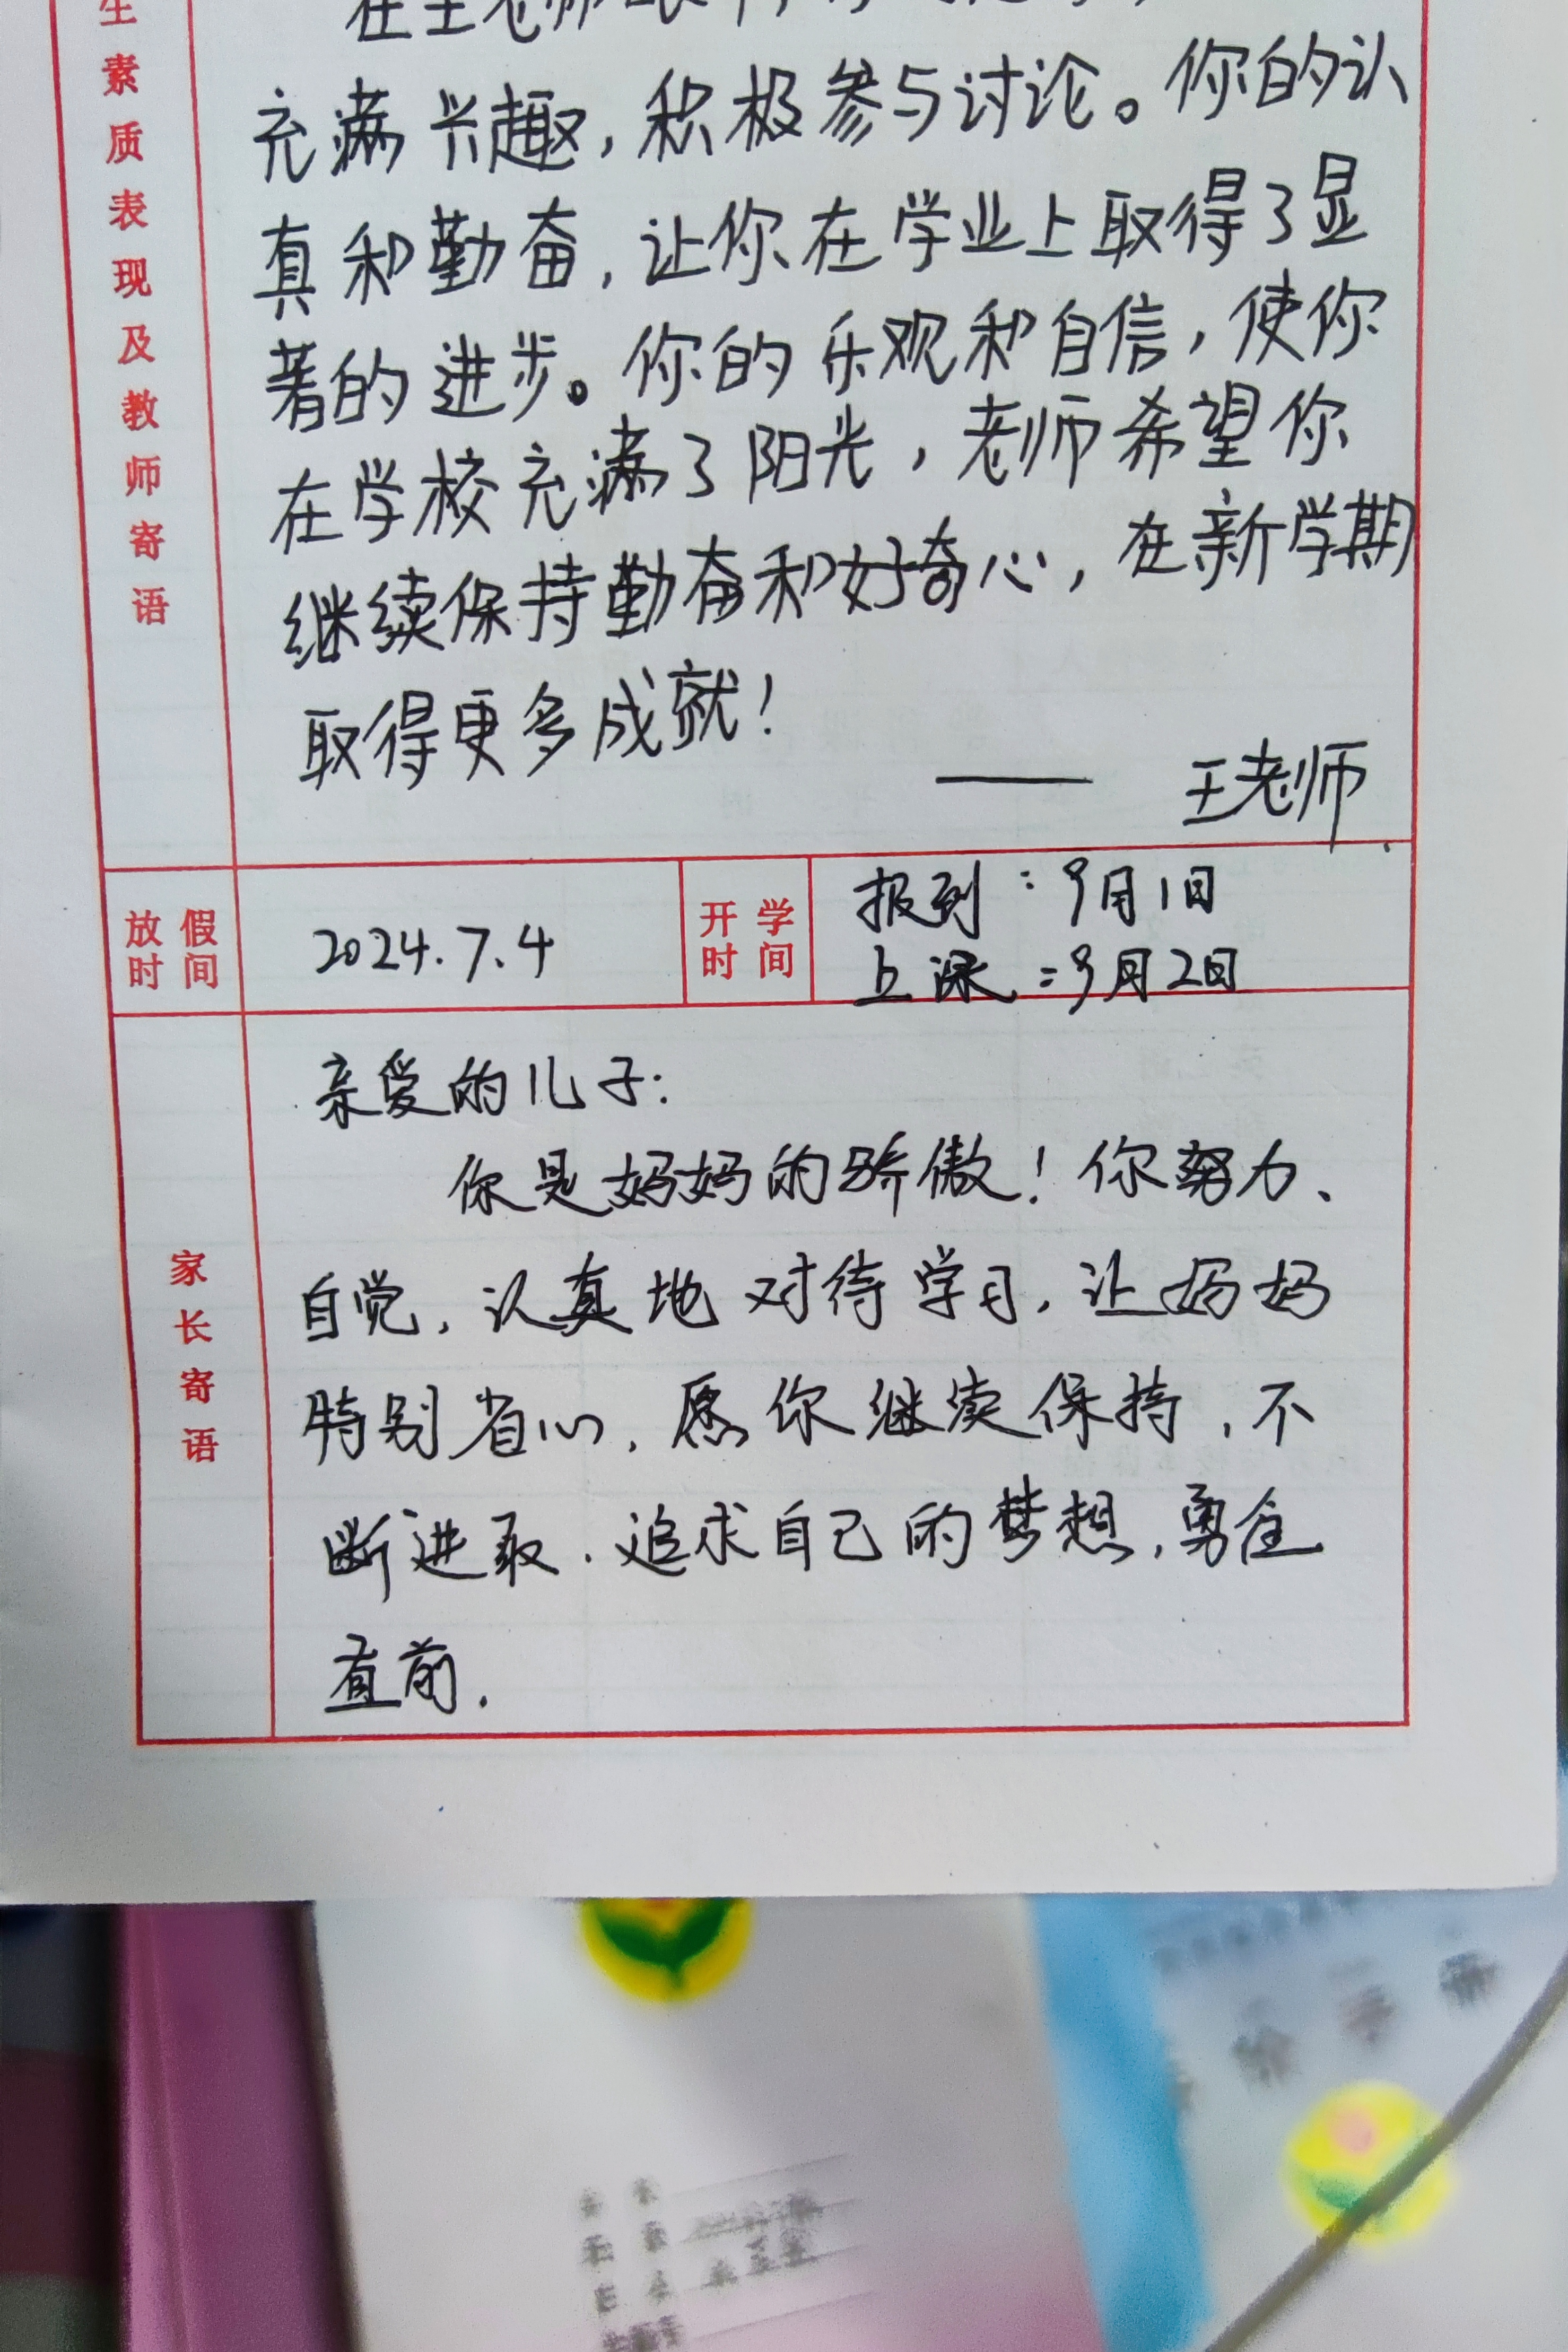 生素质表现及教师寄语
在王老师
充满兴趣，积极参与讨论。你的认
真和勤奋，让你在学业上取得了显
著的进步。你的乐观和自信，使你
在学校充满了阳光，老师希望你
继续保持勤奋和好奇心，在新学期
取得更多成就！
—— 王老师
放假时间
2024.7.4
开学时间
报到：9月1日
上课：9月2日
家长寄语
亲爱的儿子：
你是妈妈的骄傲！你努力、
自觉，认真地对待学习，让妈妈
特别省心，愿你继续保持，不
断进取，追求自己的梦想，勇往
直前.